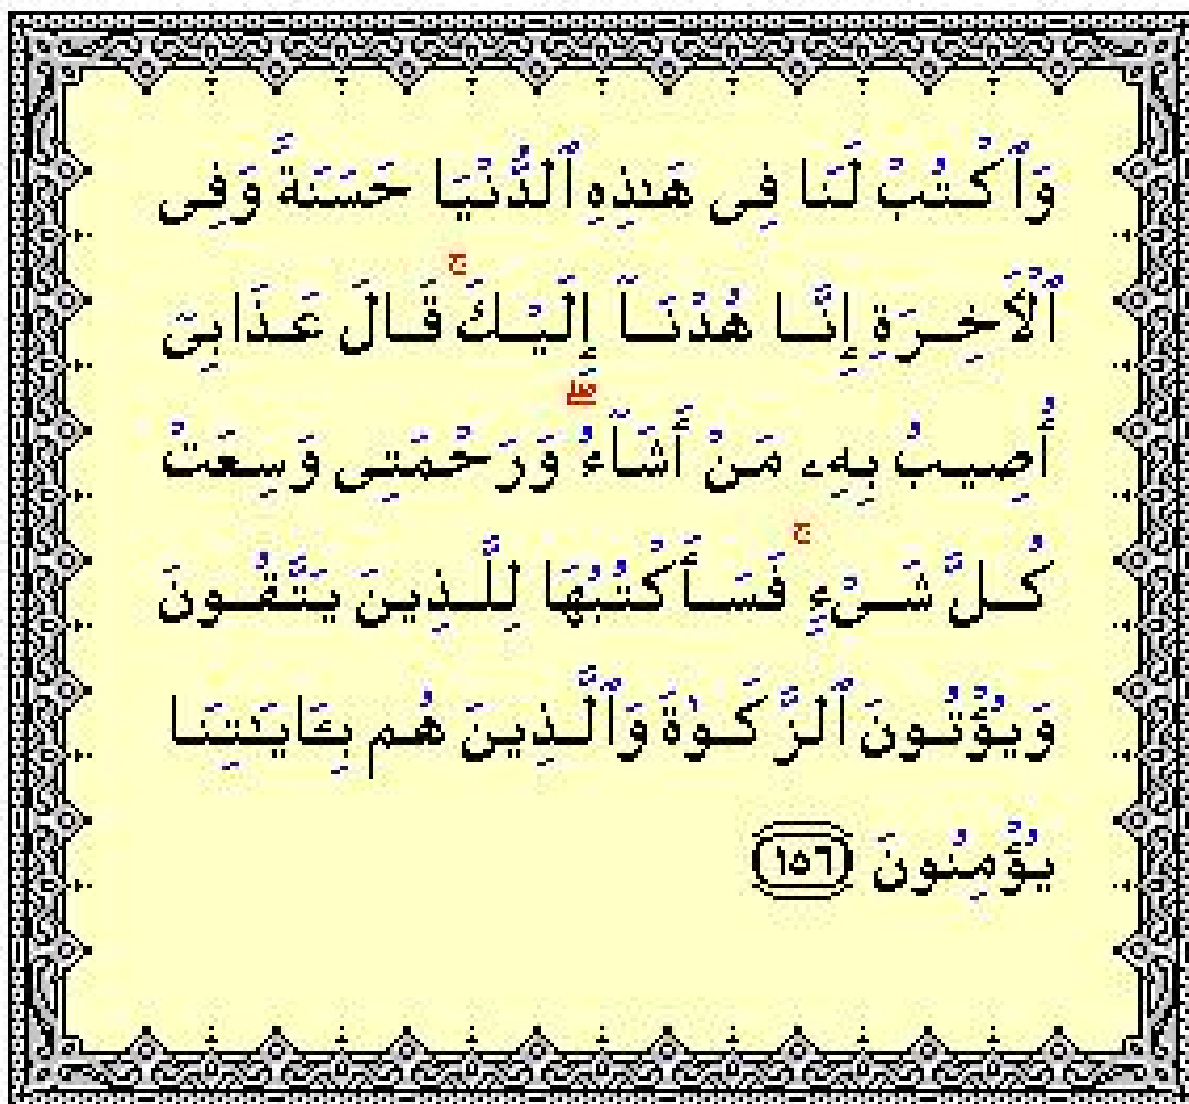 وَٱكْتُبْ لَنَا فِى هَـٰذِهِ ٱلدُّنْيَا حَسَنَةً وَفِى
ٱلْأَخِـرَةِ إِنَّـا هُدْنَـآ إِلَيْـكَ ۚ قَـالَ عَـذَابِىٓ
أُصِيـبُ بِهِۦ مَـنْ أَشَـآءُ ۖ وَرَحْـمَتِى وَسِـعَتْ
كُـلَّ شَـىْءٍ ۚ فَسَـأَكْتُبُهَا لِلَّـذِيـنَ يَتَّـقُـونَ
وَيُـؤْتُـونَ ٱلزَّكَـوٰةَ وَٱلَّـذِيـنَ هُم بِـَٔايَـٰتِنَـا
يُؤْمِنُونَ ١٥٦